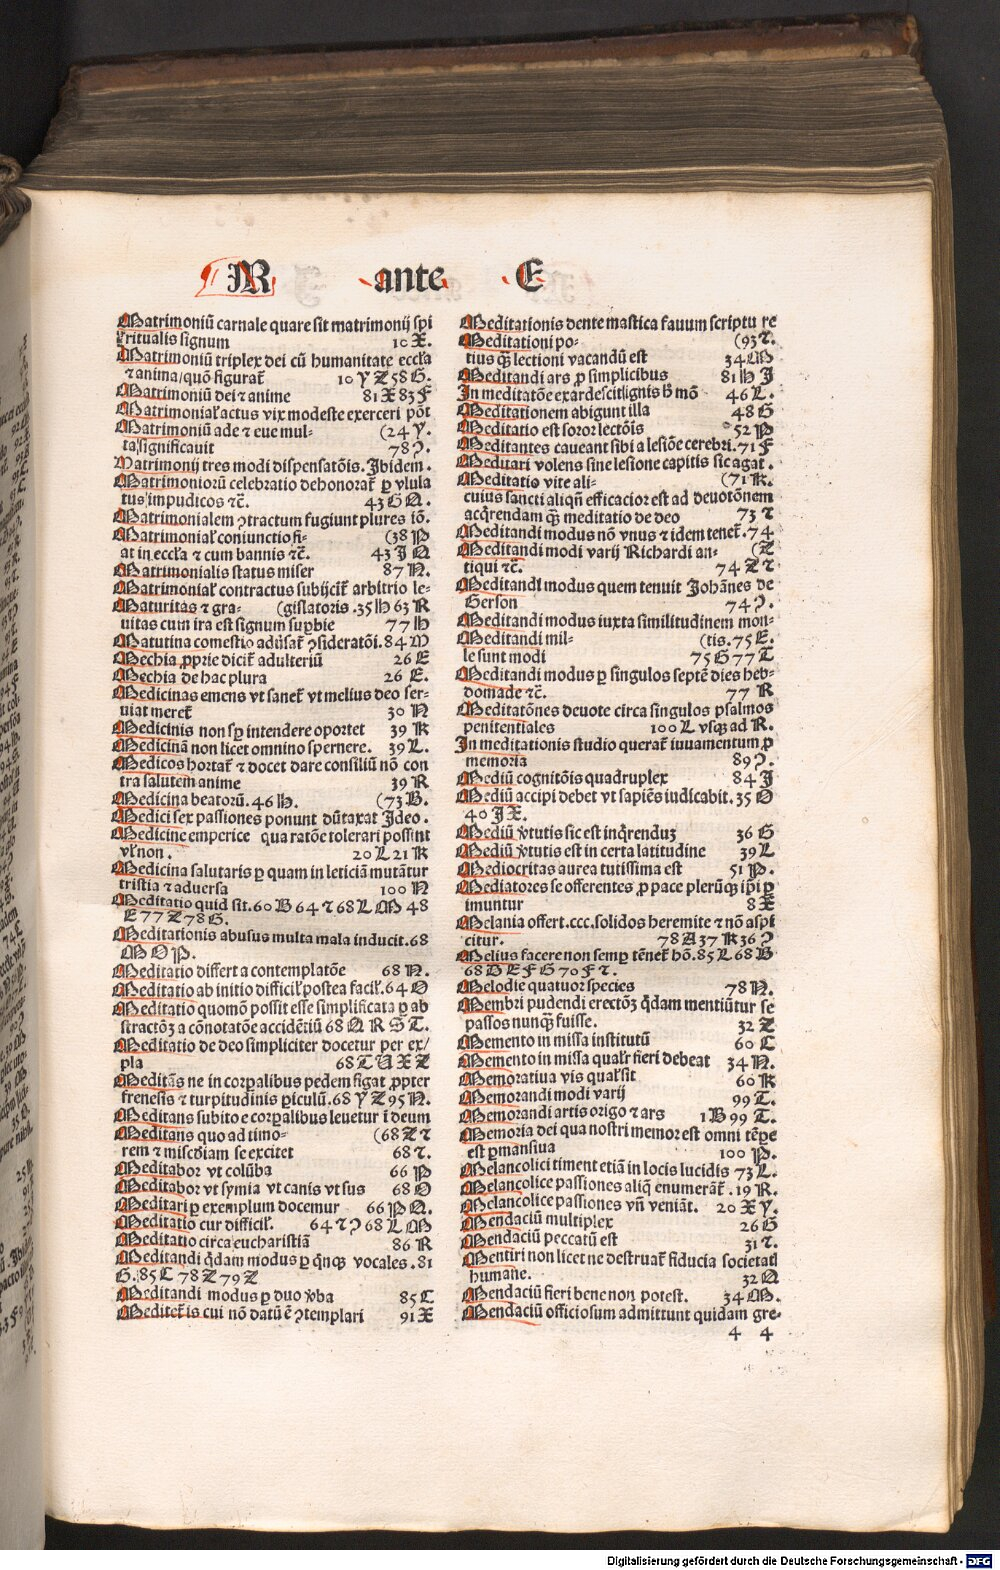 M ante E
Matrimoniū carnale quare sit matrimonij spi
ritualis signum 10 X.
Matrimoniū triplex dei cū humanitate eccl'a
⁊ anima/quō figurat̄ 10 Y Z 58 G.
Matrimoniū dei ⁊ anime 81 X 83 F
Matrimonial' actus vix modeste exerceri pōt
Matrimoniū ade ⁊ eue mul- (24 Y.
ta significauit 78 ?.
Matrimonij tres modi dispensatōis. Ibidem.
Matrimoniorū celebratio dehonorat̄ ꝑ vlula
tus impudicos ⁊c̄. 43 G Q.
Matrimonialem ↄtractum fugiunt plures iō.
Matrimonial' coniunctio fi- (38 P
at in eccl'a ⁊ cum bannis ⁊c̄. 43 J Q
Matrimonialis status miser 87 N.
Matrimonial' contractus subijcit̄ arbitrio le-
Maturitas ⁊ gra- (gislatoris .35 H 63 R
uitas cum ira est signum suꝑbie 77 H
Matutina comestio aduersat̄ ↄsideratōi. 84 M
Mechia ꝓprie dicit̄ adulteriū 26 E
Mechia de hac plura 26 E.
Medicinas emens vt sanet̄ vt melius deo ser-
uiat meret̄ 30 N
Medicinis non sꝑ intendere oportet 39 K
Medicinā non licet omnino spernere. 39 L.
Medicos hortat̄ ⁊ docet dare consiliū nō con
tra salutem anime 39 R
Medicina beatorū. 46 H. (73 B.
Medici sex passiones ponunt dūtaxat Ideo.
Medicine emperice qua ratōe tolerari possint
vl' non. 20 L 21 K
Medicina salutaris ꝑ quam in leticiā mutātur
tristia ⁊ aduersa 100 N
Meditatio quid sit. 60 B 64 ⁊ 68 L M 48
E 77 Z 78 G.
Meditationis abusus multa mala inducit. 68
M O P.
Meditatio differt a contemplatōe 68 N.
Meditatio ab initio difficil' postea facil'. 64 O
Meditatio quomō possit esse simplificata ꝑ ab
stractōꝫ a cōnotatōe accidētiū 68 Q R S T.
Meditatio de deo simpliciter docetur per ex/
pla 68 T U X Z
Meditās ne in corꝑalibus pedem figat ꝓpter
frenesis ⁊ turpitudinis ꝑiculū. 68 Y Z 95 N.
Meditans subito e corꝑalibus leuetur ī deum
Meditans quo ad timo- (68 Z ⁊
rem ⁊ misc̄diam se excitet 68 ⁊.
Meditabor vt colūba 66 P
Meditabor vt symia vt canis vt sus 68 O
Meditari ꝑ exemplum docemur 66 P Q.
Meditatio cur difficil'. 64 ⁊ ? 68 L M
Meditatio circa eucharistiā 86 R
Meditandi q̄dam modus ꝑ q̄nqꝫ vocales. 81
G. 85 C 78 Z 79 Z
Meditandi modus ꝑ duo v̄ba 85 C
Meditet̄ is cui nō datū ē ↄtemplari 91 X
Meditationis dente mastica fauum scriptu re
Meditationi po- (93 ⁊.
tius qꝫ lectioni vacandū est 34 M
Meditandi ars ꝓ simplicibus 81 H J
In meditatōe exardescit ignis b̄ mō 46 L.
Meditationem abigunt illa 48 G
Meditatio est soror lectōis 52 P
Meditantes caueant sibi a lesiōe cerebri. 71 F
Meditari volens sine lesione capitis sic agat.
Meditatio vite ali- (71 K.
cuius sancti aliqn̄ efficacior est ad deuotōnem
acq̄rendam qꝫ meditatio de deo 73 ⁊
Meditandi modus nō vnus ⁊ idem tenet̄. 74
Meditandi modi varij Richardi an- (Z
tiqui ⁊c̄. 74 Z ⁊
Meditandi modus quem tenuit Johānes de
Gerson 74 ?.
Meditandi modus iuxta similitudinem mon-
Meditandi mil- (tis. 75 E.
le sunt modi 75 G 77 T
Meditandi modus ꝑ singulos septē dies heb-
domade ⁊c̄. 77 R
Meditatōnes deuote circa singulos psalmos
penitentiales 100 L vsqꝫ ad R.
In meditationis studio querat̄ iuuamentum ꝑ
memoria 89 ?.
Mediū cognitōis quadruplex 84 J
Mediū accipi debet vt sapiēs iudicabit. 35 O
40 J X.
Mediū v̄tutis sic est inq̄rendū 36 G
Mediū v̄tutis est in certa latitudine 39 L
Mediocritas aurea tutissima est 51 P.
Mediatores se offerentes ꝓ pace plerūqꝫ ip̄i ꝑ
imuntur 8 X
Melania offert .ccc. solidos heremite ⁊ nō aspi
citur. 78 A 37 K 36 ?
Melius facere non semꝑ tenet̄ hō. 85 L 68 B
68 D E F G 70 F ⁊.
Melodie quatuor species 78 N.
Membri pudendi erectōꝫ q̄dam mentiūtur se
passos nunqꝫ fuisse. 32 Z
Memento in missa institutū 60 C
Memento in missa qual'r fieri debeat 34 N.
Memoratiua vis qual' sit 60 K
Memorandi modi varij 99 T.
Memorandi artis origo ⁊ ars 1 B 99 T.
Memoria dei qua nostri memor est omni tēꝑe
est ꝑmansiua 100 P.
Melancolici timent etiā in locis lucidis 73 L.
Melancolice passiones aliq̄ enumerāt̄. 19 R.
Melancolice passiones vn̄ veniāt. 20 X Y.
Mendaciū multiplex 26 G
Mendaciū peccatū est 31 ⁊.
Mentiri non licet ne destruat̄ fiducia societati
humane. 32 Q
Mendaciū fieri bene non potest. 34 M.
Mendaciū officiosum admittunt quidam gre-
4 4
Digitalisierung gefördert durch die Deutsche Forschungsgemeinschaft - DFG